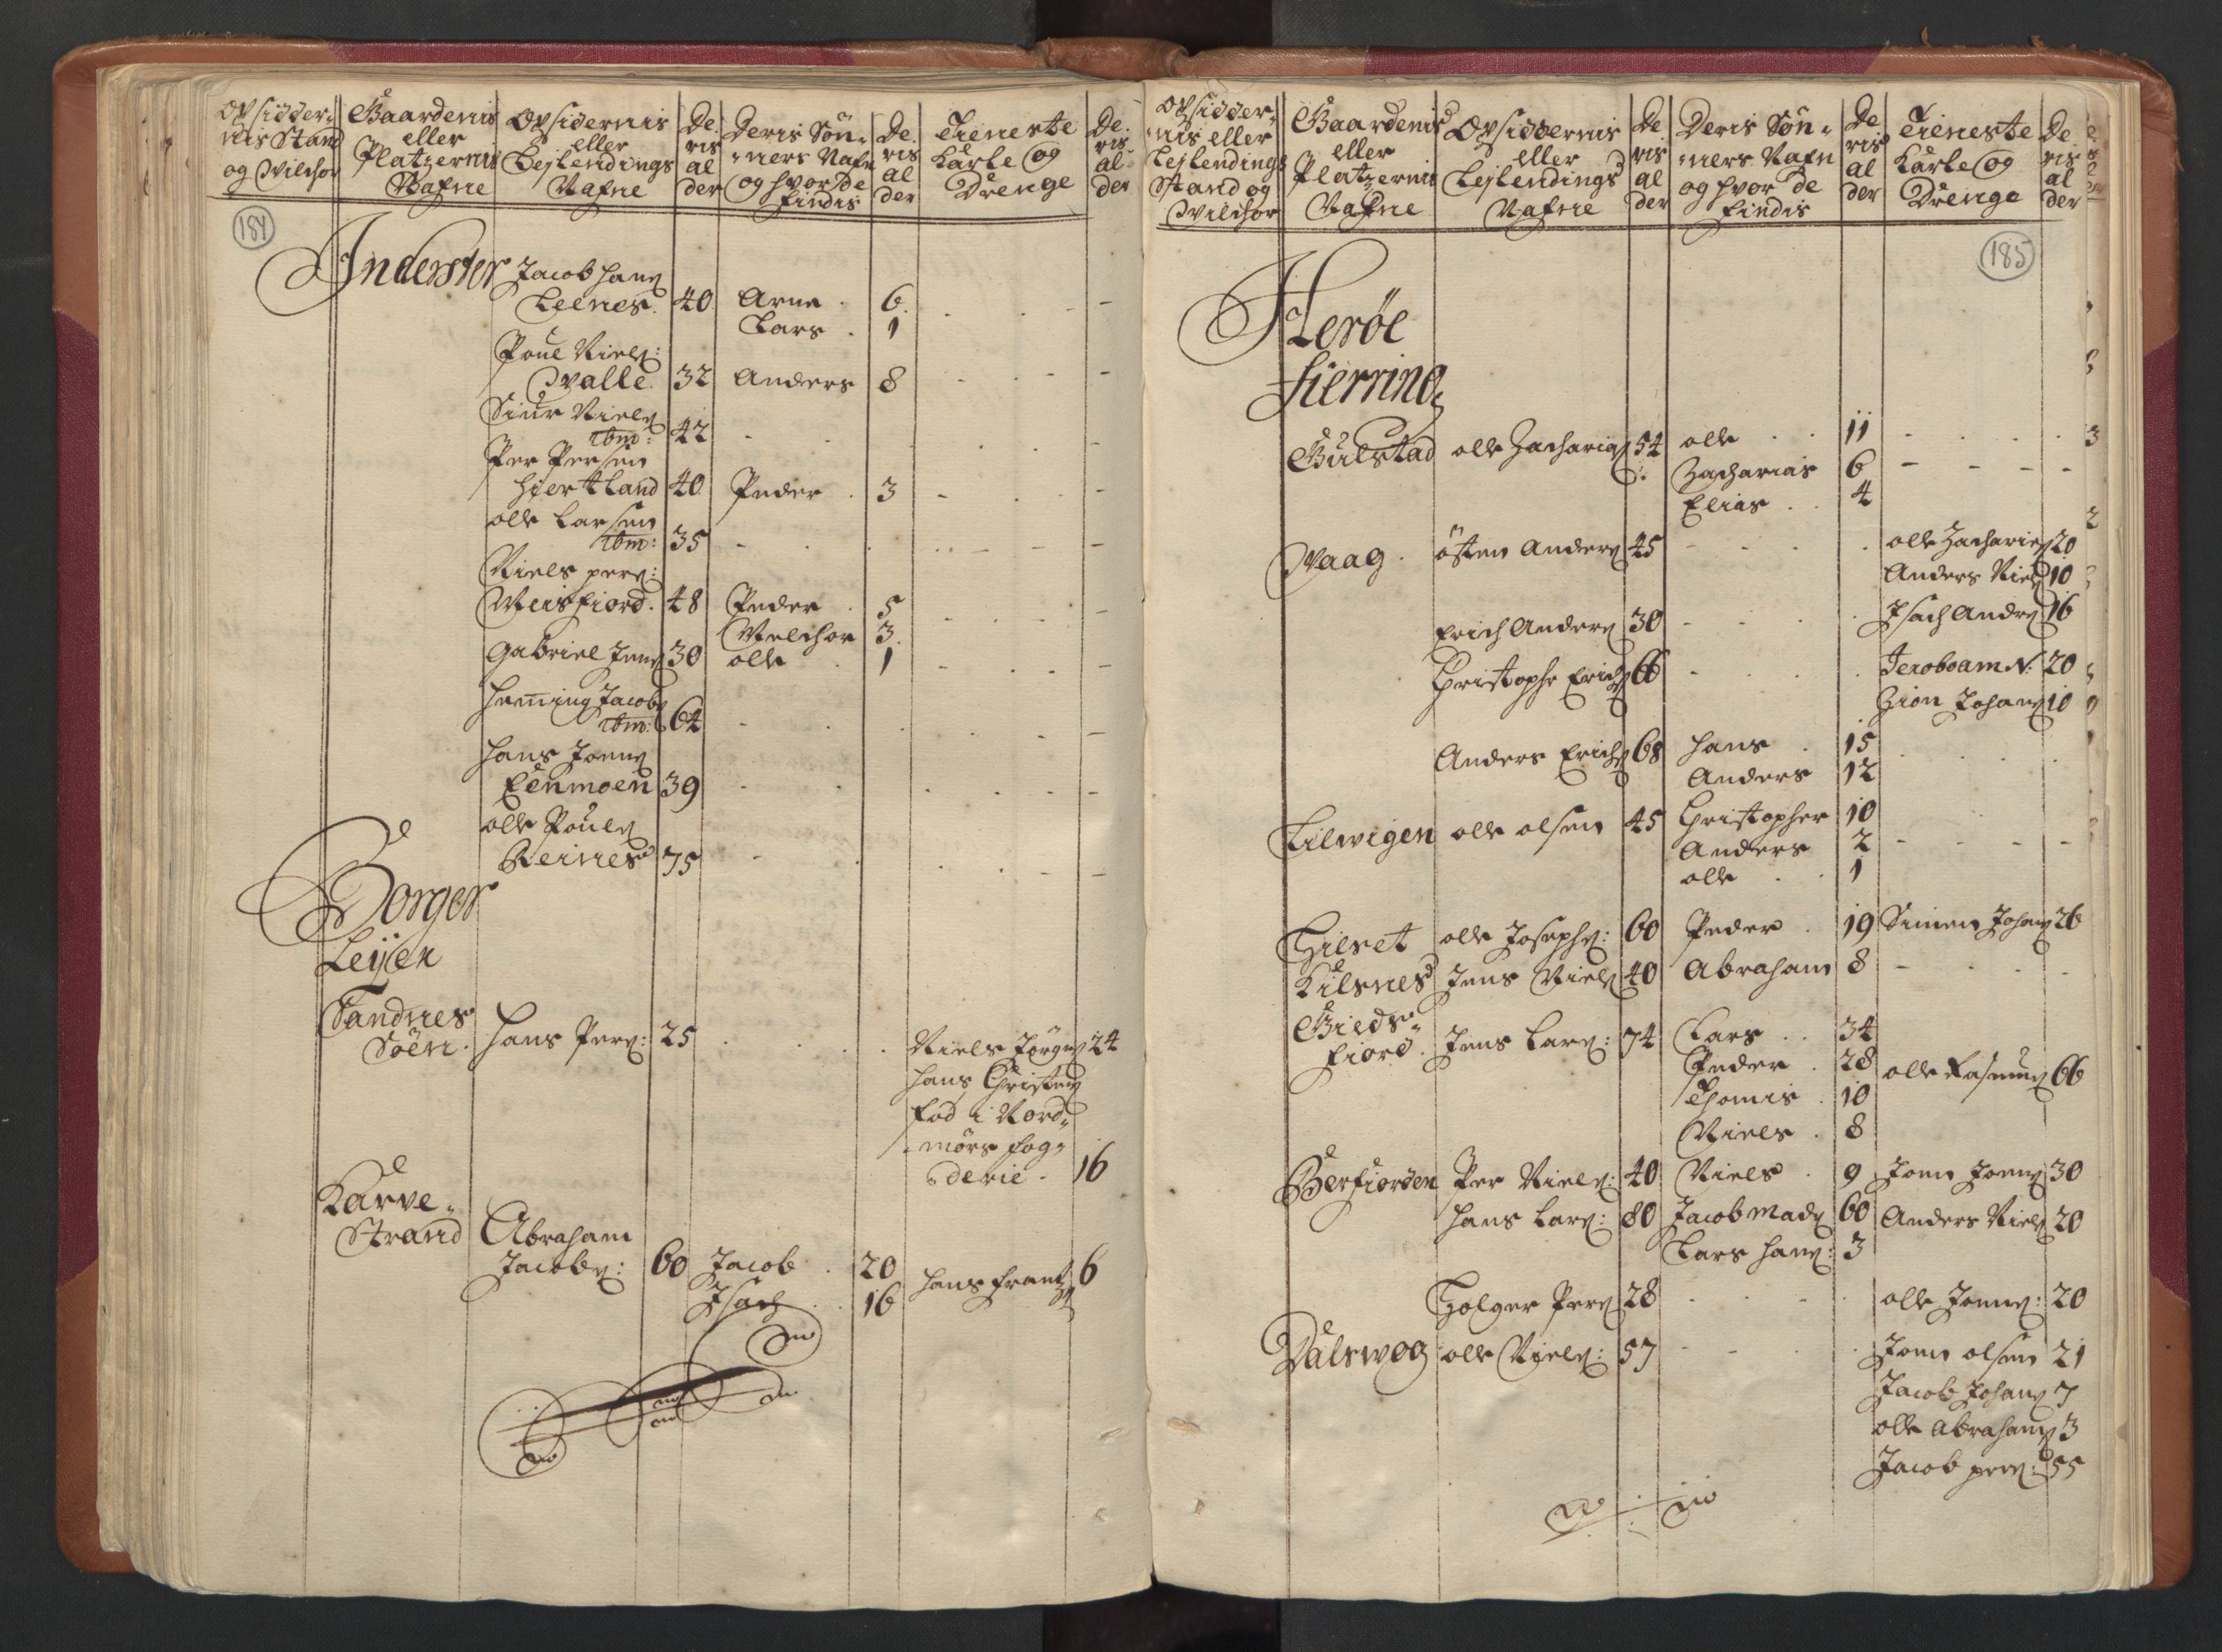 Opsidder-
nis Stand
og Wilchor
Gaardenis
eller
Platzernis
Nafne
Opsidernis
eller
Lejlendings
Nafne
De
ris
al
der
Deris Søn-
ners Nafn
og hvor de
findis
De
ris
al
der
Tieneste
Karle og
Drenge
De
ris
al
der
184
Inderster
Jacob Hans:
Leenes. 40 Arne . 6.
Lars . 1
Poul Niels:
Walle. 32 Anders 8
Siur Niels:
ibm: 42
Per Persen
Hiertland 40 Peder . 3
Olle Larsen
ibm: 35
Niels Pers:
Meisfiord. 48 Peder . 5
Melchor 3.
Gabriel Jens: 30 Olle . 1
Hening Jacobs:
ibm: 64
Hans Jons:
Lenmoen 39
Olle Pouls:
Reines 75
Borger
Leijen
Sandnes
Søen. Hans Pers: 25 Niels Jørgens: 24
Hans Christens:
fød i Nord-
mørs fog-
derie. 16
Karve-
Strand Abraham
Jacobs: 60 Jacob . 20 Hans Frantz: 6
Isach . 16
Opsidder-
nis eller
Lejlendings
Stand og
Wilchor
Gaardenis
eller
Platzernis
Nafne
Opsiddernis
eller
Lejlendings
Nafne
De
ris
al
der
Deris Søn-
ners Nafn
og hvor de
findis
De
ris
al
der
Tieneste
Karle og
Drenge
De
ris
al
der
185
Herøe
fierring
Gulstad Olle Zacharias: 54 Olle . . 11
Zacharias 6
Elias . . 4
Waag. Østen Anders: 45 Olle Zacharies: 20
Anders Niels: 10
Erich Anders: 30 Isach Andrs: 16
Christophr Erichs: 66 Jeroboam N: 20
Zion Johans: 10
Anders Erichs: 68 Hans . 15
Anders 12
Lilwigen Olle Olsen 45 Christopher 10
Anders 2
Olle . . 1
Gilset Olle Josephs: 60 Peder . 19 Simen Johans: 26
Kilsnes Jens Niels: 40 Abraham 8
Gieds-
fiord. Jens Lars: 74 Lars . . 34
Peder . 28 Olle Rasmus: 66
Thomis . 10
Niels . 8
Berfiorden Per Niels: 40 Niels . 9 Jonn Jons: 30
Hans Lars: 80 Jacob Mads: 60 Anders Niels: 20
Lars Hans: 3
Holger Pers: 28 Olle Jons: 20
Dalswog Olle Niels: 57 Jonn Olsen 21
Jacob Johans: 7
Olle Abrahams: 3
Jacob Pers: 55